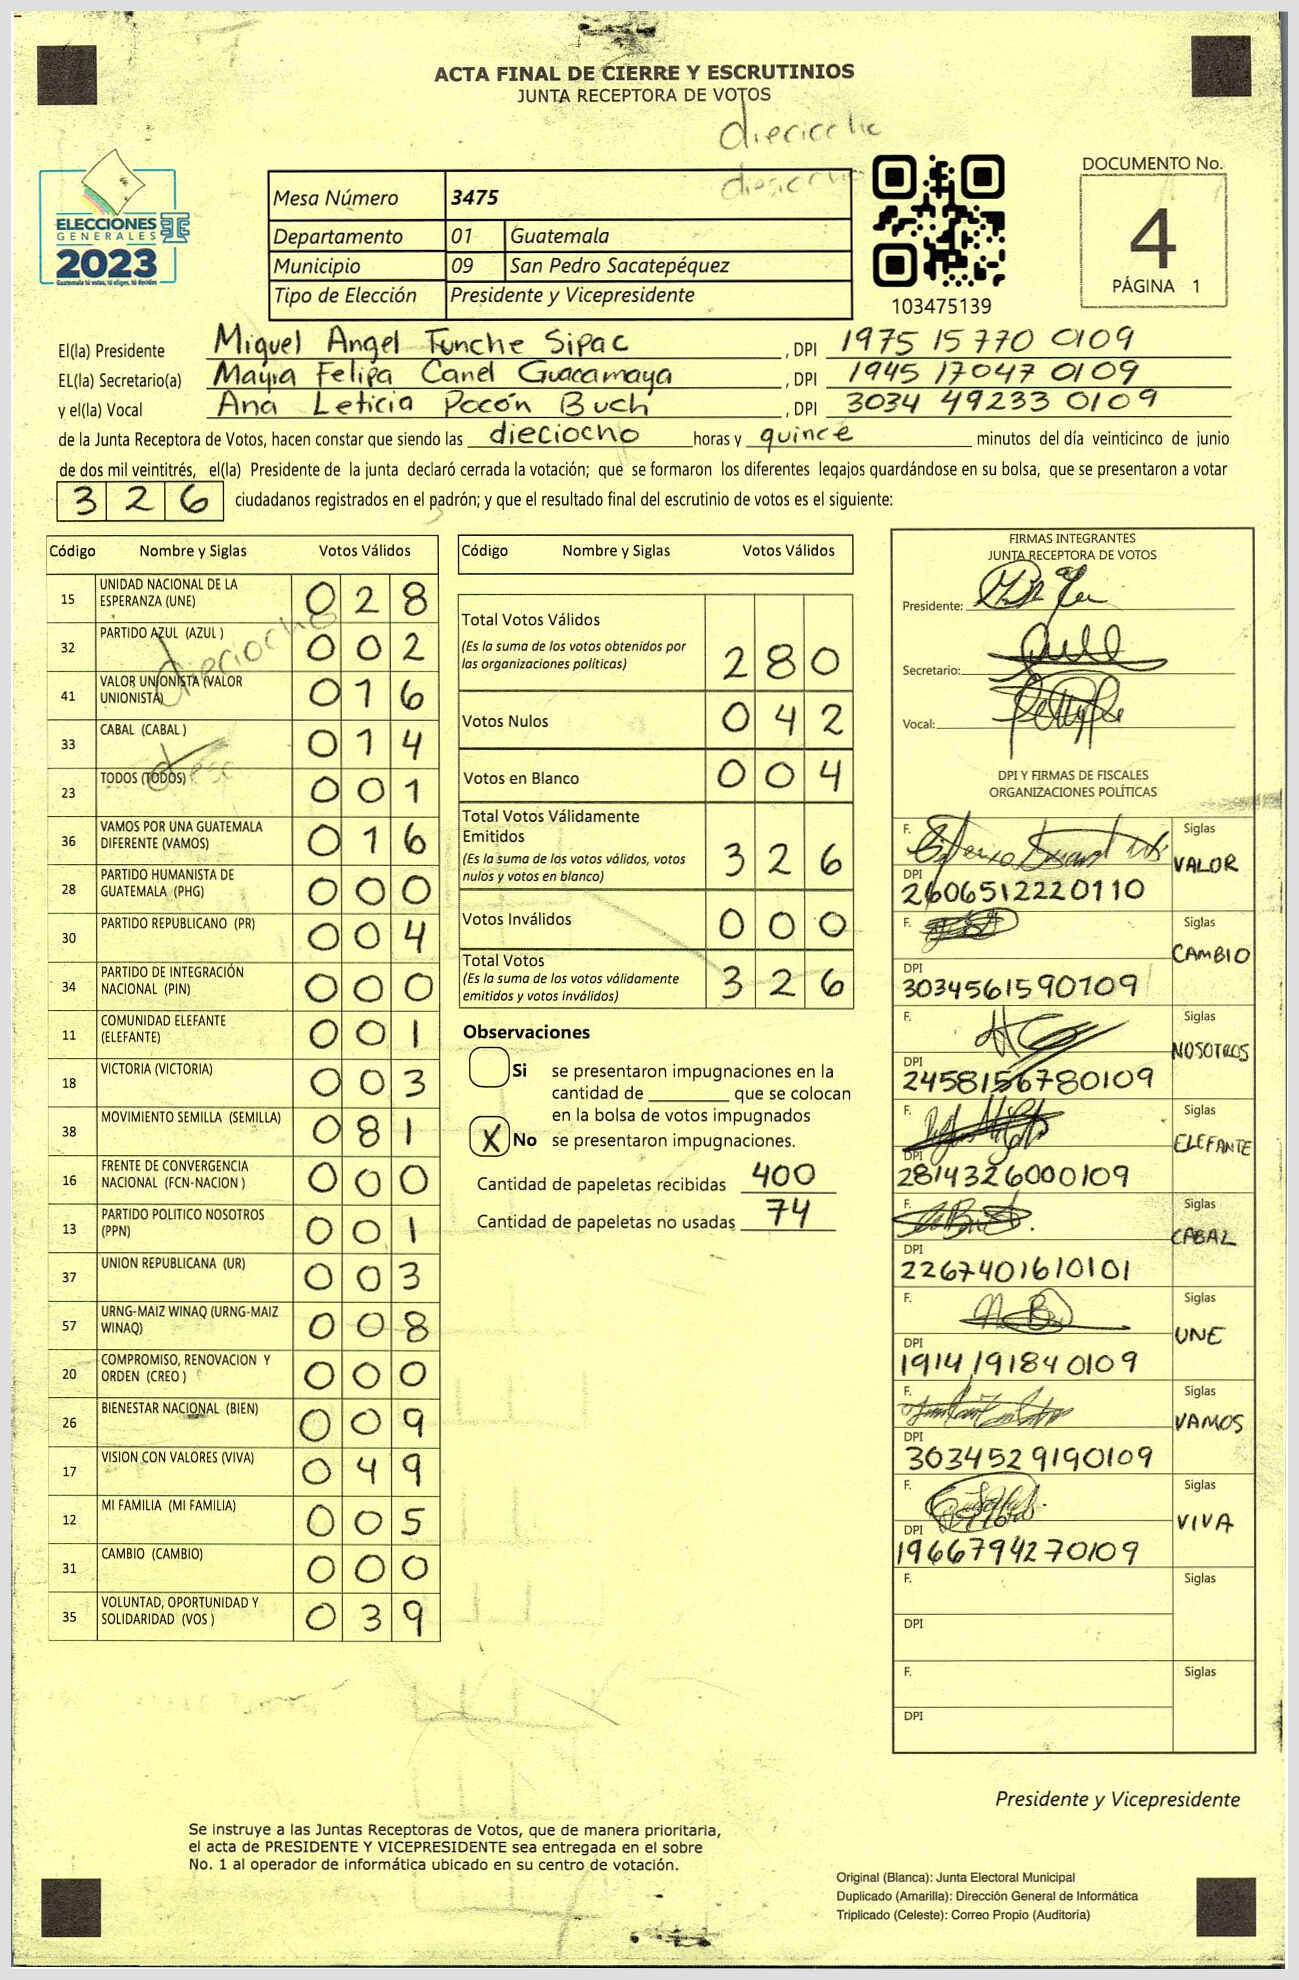 ACTA FINAL DE CIERRE Y ESCRUTINIOS
JUNTA RECEPTORA DE VOTOS
dieciocho
ELECCIONES
GENERALES
2023
Guatemala tú votas, tú eliges, tú decides
Mesa Número 3475
Departamento 01 Guatemala
Municipio 09 San Pedro Sacatepéquez
Tipo de Elección Presidente y Vicepresidente
103475139
DOCUMENTO No.
4
PÁGINA 1
El(la) Presidente Miguel Angel Tunche Sipac, DPI 1975 15770 0109
EL(la) Secretario(a) Mayra Felipa Canel Guacamaya, DPI 1945 17047 0109
y el(la) Vocal Ana Leticia Pocón Buch, DPI 3034 49233 0109
de la Junta Receptora de Votos, hacen constar que siendo las dieciocho horas y quince minutos del día veinticinco de junio
de dos mil veintitrés, el(la) Presidente de la junta declaró cerrada la votación; que se formaron los diferentes legajos guardándose en su bolsa, que se presentaron a votar
326 ciudadanos registrados en el padrón; y que el resultado final del escrutinio de votos es el siguiente:
Código Nombre y Siglas Votos Válidos
15 UNIDAD NACIONAL DE LA ESPERANZA (UNE) 028
32 PARTIDO AZUL (AZUL ) 002
dieciocho
41 VALOR UNIONISTA (VALOR UNIONISTA) 016
33 CABAL (CABAL ) 014
23 TODOS (TODOS) 001
36 VAMOS POR UNA GUATEMALA DIFERENTE (VAMOS) 016
28 PARTIDO HUMANISTA DE GUATEMALA (PHG) 000
30 PARTIDO REPUBLICANO (PR) 004
34 PARTIDO DE INTEGRACIÓN NACIONAL (PIN) 000
11 COMUNIDAD ELEFANTE (ELEFANTE) 001
18 VICTORIA (VICTORIA) 003
38 MOVIMIENTO SEMILLA (SEMILLA) 081
16 FRENTE DE CONVERGENCIA NACIONAL (FCN-NACION ) 000
13 PARTIDO POLITICO NOSOTROS (PPN) 001
37 UNION REPUBLICANA (UR) 003
57 URNG-MAIZ WINAQ (URNG-MAIZ WINAQ) 008
20 COMPROMISO, RENOVACION Y ORDEN (CREO ) 000
26 BIENESTAR NACIONAL (BIEN) 009
17 VISION CON VALORES (VIVA) 049
12 MI FAMILIA (MI FAMILIA) 005
31 CAMBIO (CAMBIO) 000
35 VOLUNTAD, OPORTUNIDAD Y SOLIDARIDAD (VOS ) 039
Código Nombre y Siglas Votos Válidos
Total Votos Válidos
(Es la suma de los votos obtenidos por
las organizaciones políticas) 280
Votos Nulos 042
Votos en Blanco 004
Total Votos Válidamente
Emitidos
(Es la suma de los votos válidos, votos
nulos y votos en blanco) 326
Votos Inválidos 000
Total Votos
(Es la suma de los votos válidamente
emitidos y votos inválidos) 326
Observaciones
Si se presentaron impugnaciones en la
cantidad de ________ que se colocan
en la bolsa de votos impugnados
X No se presentaron impugnaciones.
Cantidad de papeletas recibidas 400
Cantidad de papeletas no usadas 74
FIRMAS INTEGRANTES
JUNTA RECEPTORA DE VOTOS
Presidente:
Secretario:
Vocal:
DPI Y FIRMAS DE FISCALES
ORGANIZACIONES POLÍTICAS
F. Siglas
VALOR
DPI
2606512220110
F. Siglas
CAMBIO
DPI
3034561590109
F. Siglas
NOSOTROS
DPI
2458156780109
F. Siglas
ELEFANTE
DPI
2814326000109
F. Siglas
CABAL
DPI
2267401610101
F. Siglas
UNE
DPI
1914191840109
F. Siglas
VAMOS
DPI
3034529190109
F. Siglas
VIVA
DPI
1966794270109
F. Siglas
DPI
F. Siglas
DPI
Presidente y Vicepresidente
Se instruye a las Juntas Receptoras de Votos, que de manera prioritaria,
el acta de PRESIDENTE Y VICEPRESIDENTE sea entregada en el sobre
No. 1 al operador de informática ubicado en su centro de votación.
Original (Blanca): Junta Electoral Municipal
Duplicado (Amarilla): Dirección General de Informática
Triplicado (Celeste): Correo Propio (Auditoría)